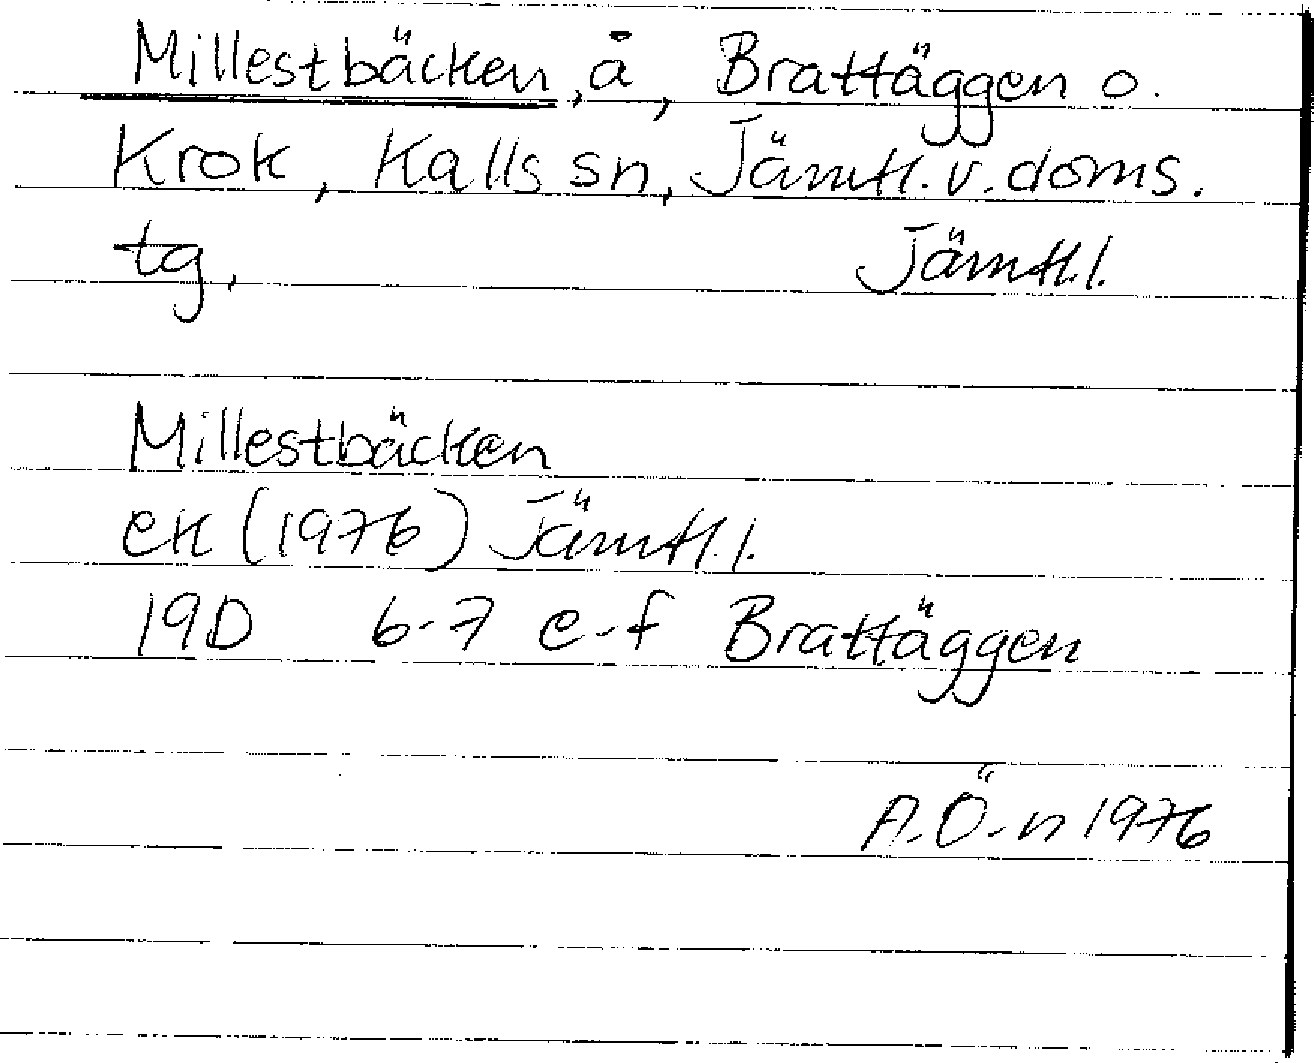 Millestbäcken, å, Brattäggen o.
Krok, Kalls sn, Jämtl. v. doms.
tg, Jämtl. l.
Millestbäcken
ek (1976) Jämtl. l.
19D 6-7 e-f Brattäggen
A.Ö-n 1976